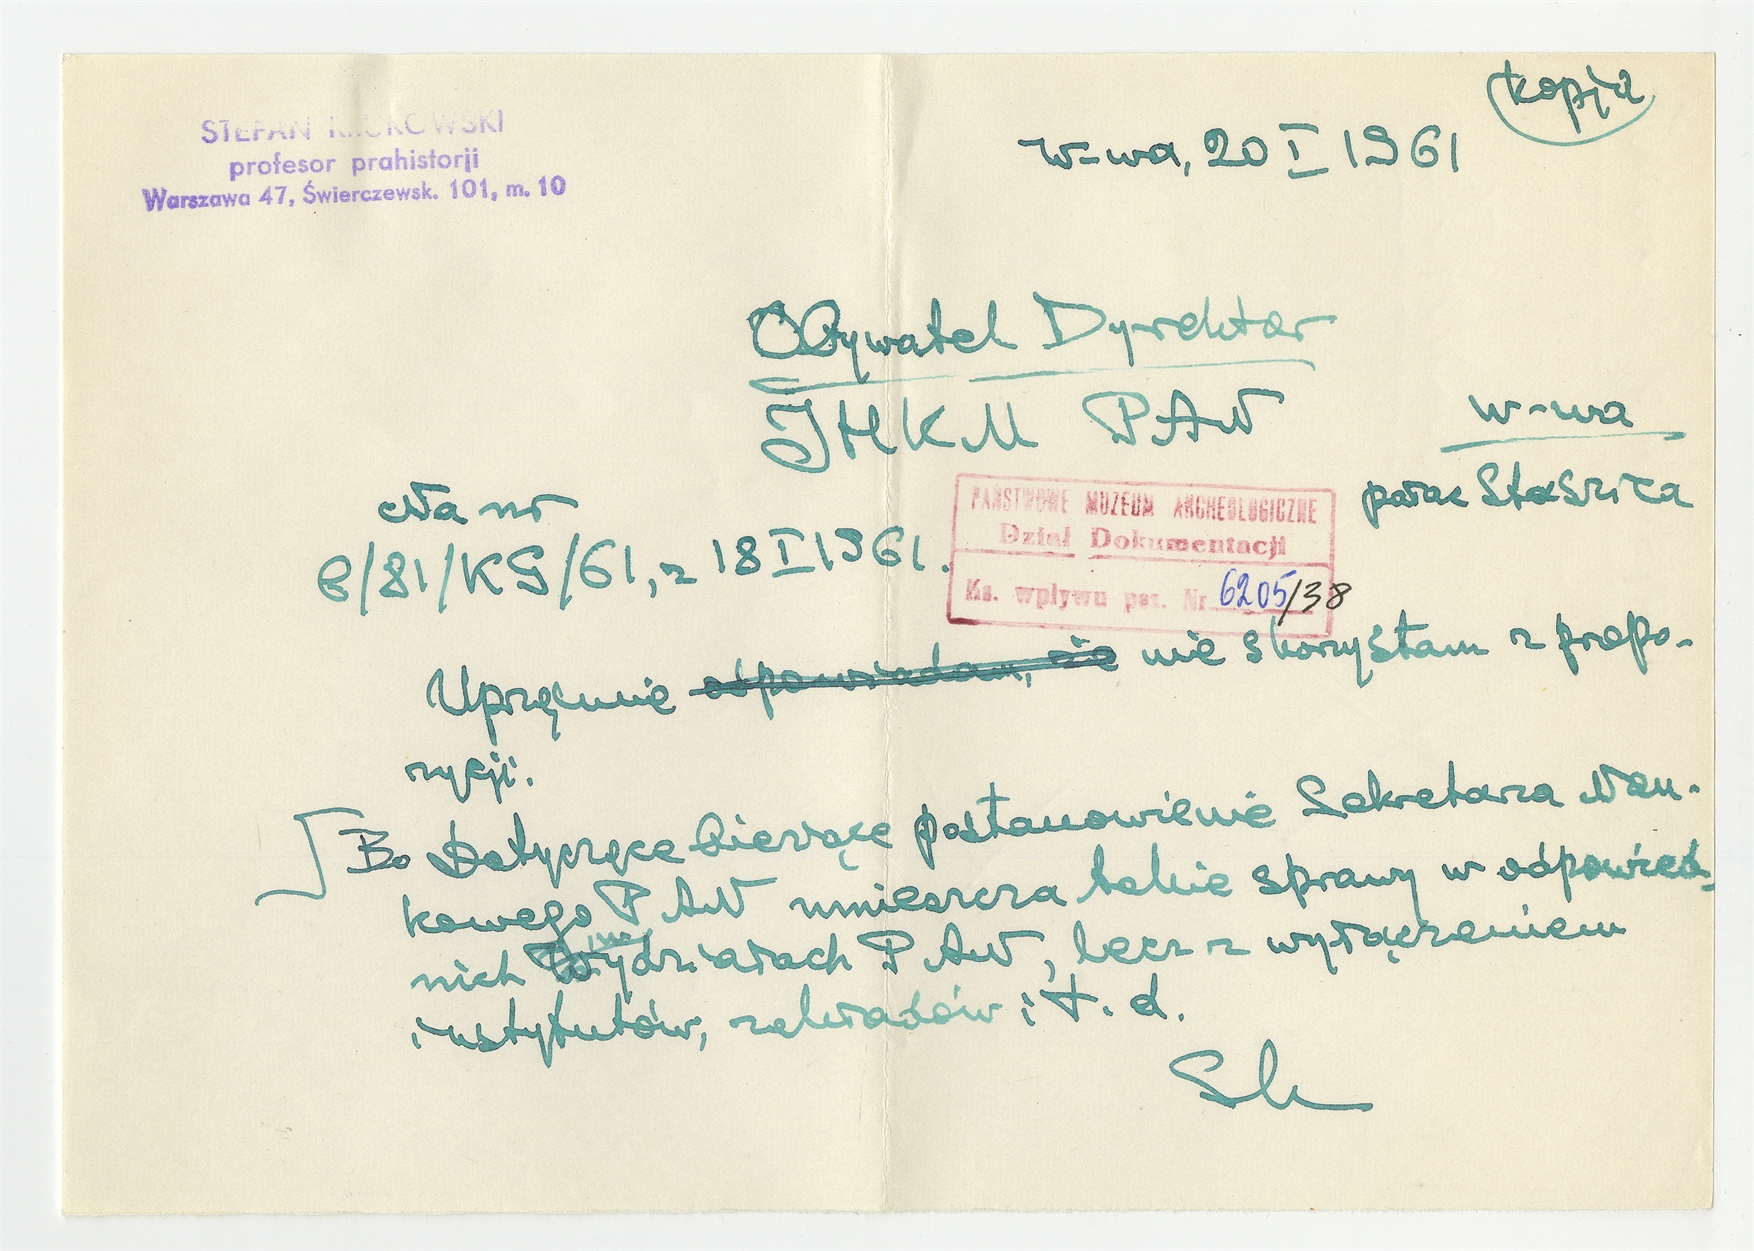 kopja
STEFAN KRUKOWSKI
profesor prahistorji
Warszawa 47, Świerczewsk. 101, m. 10
W-wa, 20 I 1961
Obywatel Dyrektor
IHKM PAN
W-wa
pałac Staszica
Na nr
6/81/KG/61, z 18 I 1961.
PAŃSTWOWE MUZEUM ARCHEOLOGICZNE
Dział Dokumentacji
Ks. wpływu poz. Nr 6205/38
Uprzejmie odpowiadam, że nie skorzystam z propo-
zycji.
Bo Dotyczące bieżące postanowienie Sekretarza Nau-
kowego PAN umieszcza takie sprawy w odpowied-
nich wydziałach PAN, lecz z wyłączeniem
instytutów, zakładów i t. d.
SK